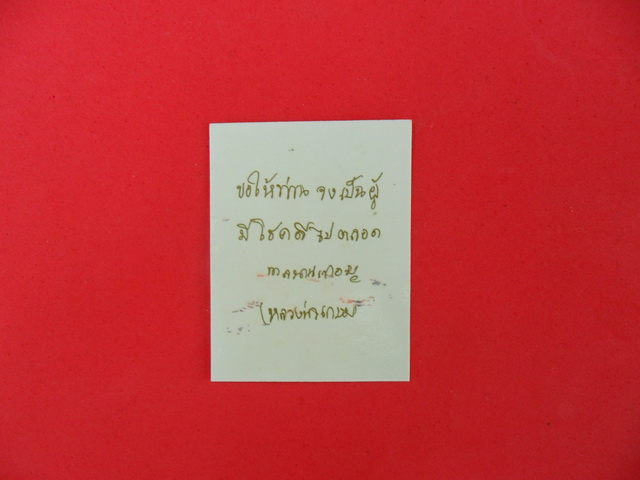 ขอให้ท่าน จงเป็นผู้
มีโชคดีไปตลอด
กาลนานเทอญ
หลวงพ่อเกษม